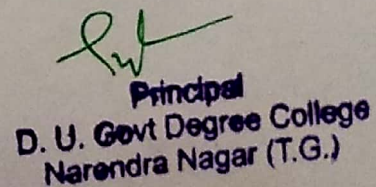 Principal
D. U. Govt Degree College
Narendra Nagar (T.G.)